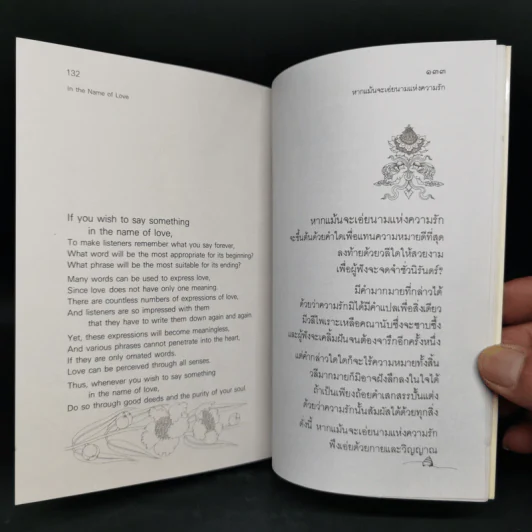 132
In the Name of Love
If you wish to say something
in the name of love,
To make listeners remember what you say forever,
What word will be the most appropriate for its beginning?
What phrase will be the most suitable for its ending?
Many words can be used to express love,
Since love does not have only one meaning.
There are countless numbers of expressions of love,
And listeners are so impressed with them
that they have to write them down again and again.
Yet, these expressions will become meaningless,
And various phrases cannot penetrate into the heart,
If they are only ornated words.
Love can be perceived through all senses.
Thus, whenever you wish to say something
in the name of love,
Do so through good deeds and the purity of your soul.
๑๓๓
หากแม้นจะเอ่ยนามแห่งความรัก
หากแม้นจะเอ่ยนามแห่งความรัก
จะขึ้นต้นด้วยคำใดเพื่อแทนความหมายดีที่สุด
ลงท้ายด้วยวลีใดให้สวยงาม
เพื่อผู้ฟังจะจดจำชั่วนิรันดร์?
มีคำมากมายที่กล่าวได้
ด้วยว่าความรักมิได้มีคำแปลเพื่อสิ่งเดียว
มีวลีไพเราะเหลือคณานับซึ่งจะซาบซึ้ง
และผู้ฟังจะเคลิ้มฝันจนต้องจารึกอีกครั้งหนึ่ง
แต่คำกล่าวใดใดก็จะไร้ความหมายทั้งสิ้น
วลีมากมายก็มิอาจฝังลึกลงในใจได้
ถ้าเป็นเพียงถ้อยคำเสกสรรปั้นแต่ง
ด้วยว่าความรักนั้นสัมผัสได้ด้วยทุกสิ่ง
ดังนี้ หากแม้นจะเอ่ยนามแห่งความรัก
พึงเอ่ยด้วยกายและวิญญาณ